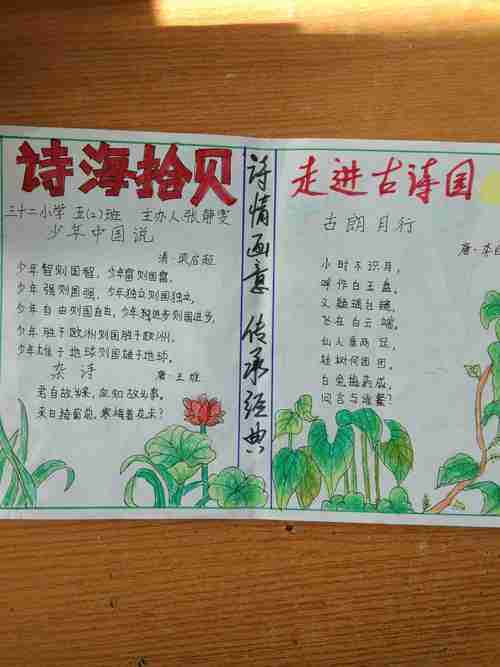 诗海拾贝
三十二小学 五(2)班 主办人张静雯
少年中国说
清·梁启超
少年智则国智，少年富则国富，
少年强则国强，少年独立则国独立，
少年自由则国自由，少年进步则国进步，
少年胜于欧洲则国胜于欧洲，
少年雄于地球则国雄于地球。
杂诗
唐·王维
君自故乡来，应知故乡事。
来日绮窗前，寒梅着花未？
诗情画意 传承经典
走进古诗园
古朗月行
唐·李白
小时不识月，
呼作白玉盘。
又疑瑶台镜，
飞在白云端。
仙人垂两足，
桂树何团团。
白兔捣药成，
问言与谁餐？